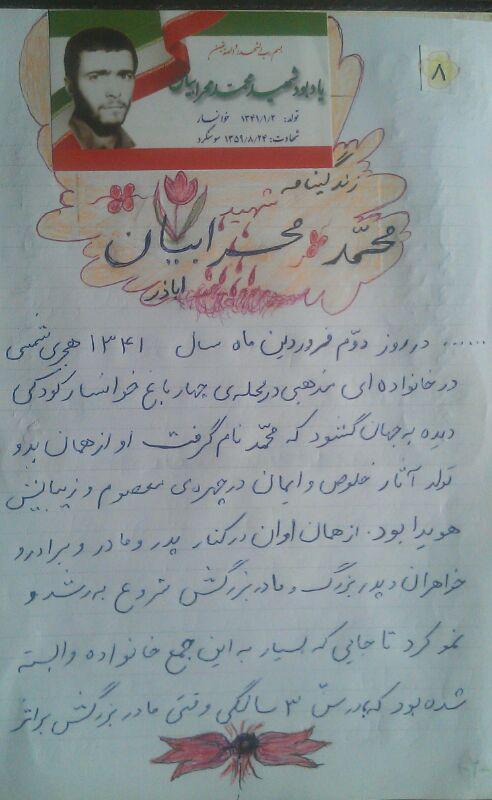 بسم رب الشهداء و الصدیقین
۸
یادبود شهید محمد محرابیان
تولد: ۱۳۴۱/۱/۲ خوانسار
شهادت: ۱۳۵۹/۸/۲۴ سوسنگرد
زندگینامه
شهید
محمّد محرابیان
اباذر
...... در روز دوّم فروردین ماه سال ۱۳۴۱ هجری شمسی
در خانواده ای مذهبی در محله ی چهارباغ خوانسار کودکی
دیده به جهان گشود که محمّد نام گرفت او از همان بدو
تولد آثار خلوص و ایمان در چهره ی معصوم و زیبایش
هویدا بود. از همان اوان در کنار پدر و مادر و برادر و
خواهران و پدربزرگ و مادربزرگش شروع به رشد و
نمو کرد تا جایی که بسیار به این جمع خانواده وابسته
شده بود که در سنّ ۳ سالگی وقتی مادربزرگش بر اثر